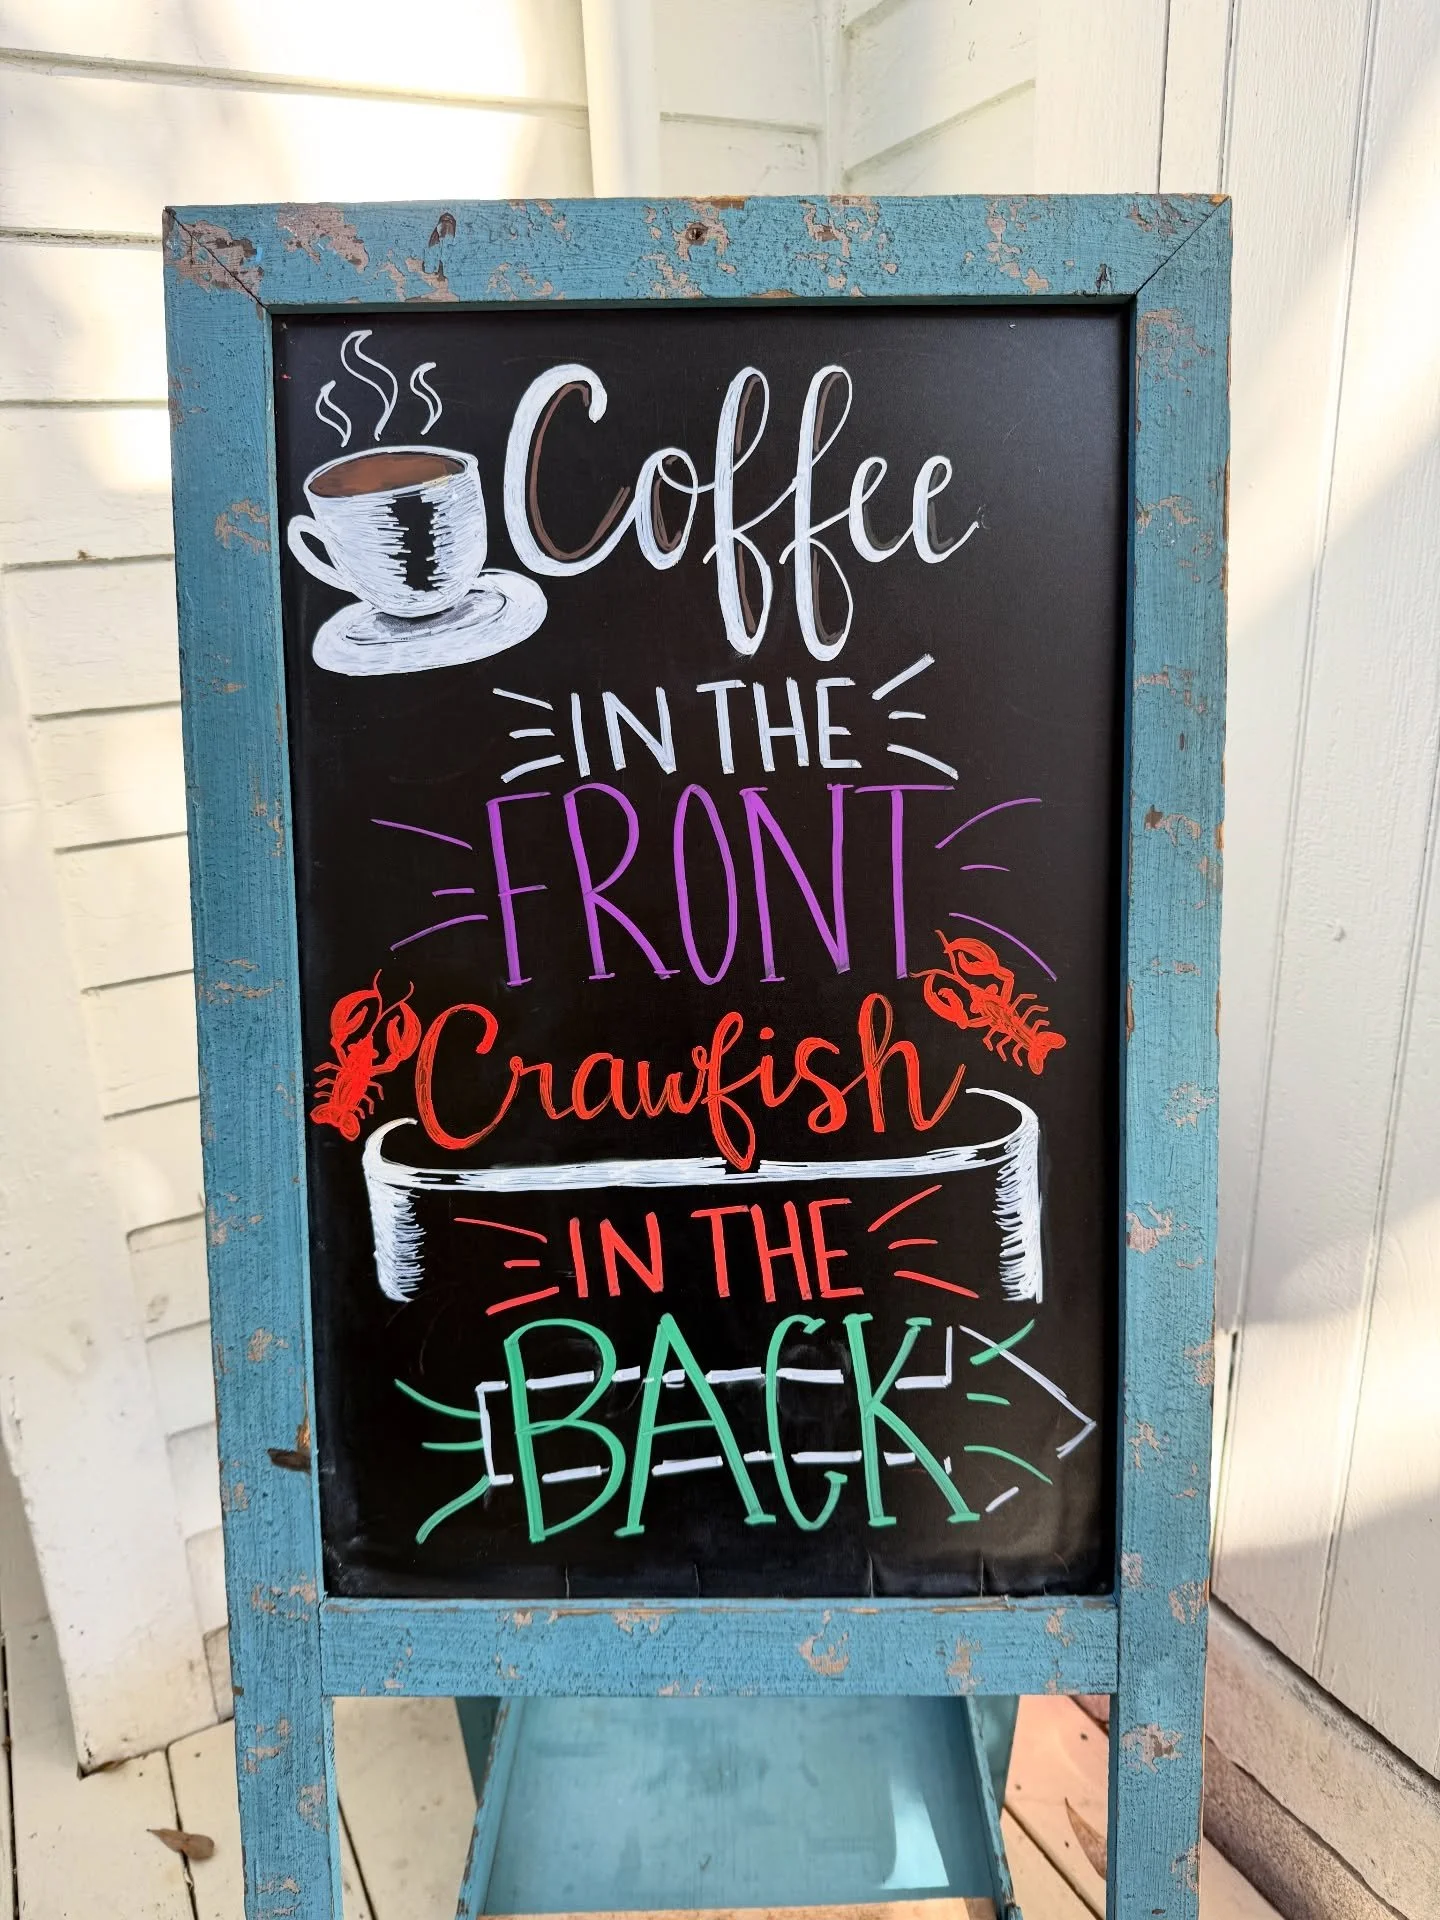 Coffee
IN THE
FRONT
Crawfish
IN THE
BACK